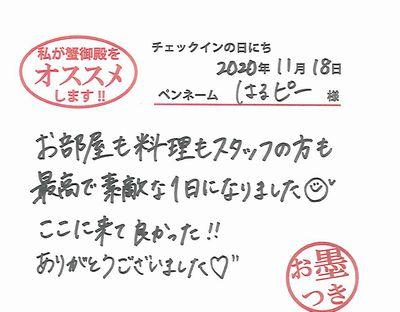 私が蟹御殿を
オススメ
します!!
チェックインの日にち
2020年 11月 18日
ペンネーム はるピー 様
お部屋も料理もスタッフの方も
最高で素敵な1日になりました☺♥
ここに来て良かった!!
ありがとうございました♡"
お墨
つき